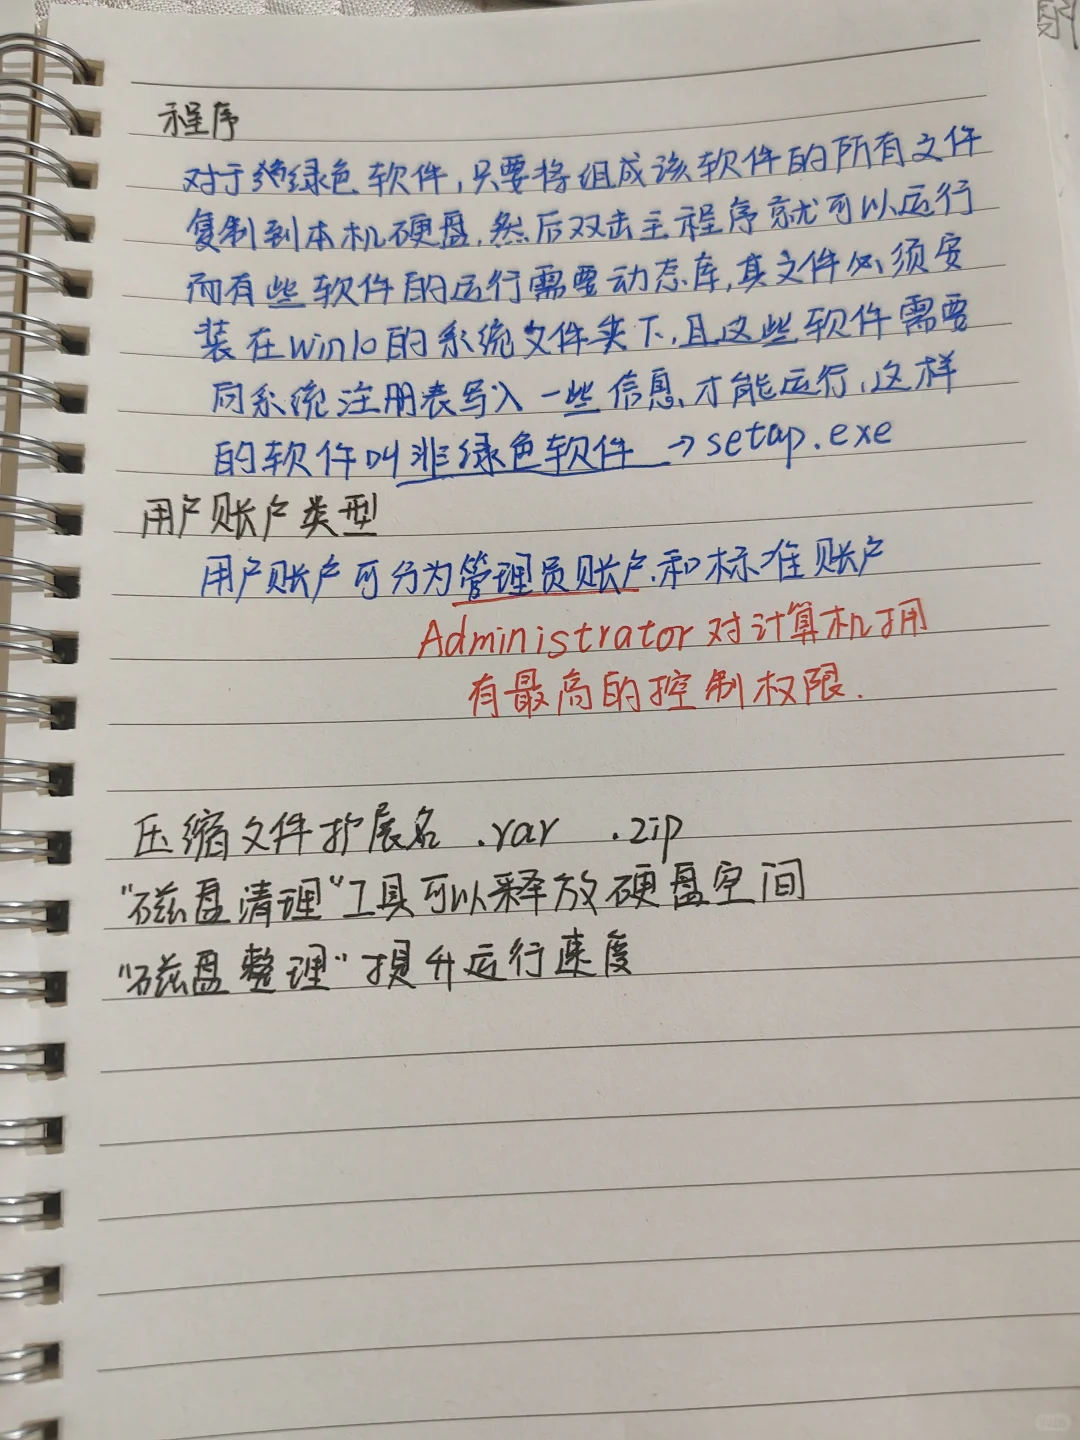 程序
对于绿色软件,只要将组成该软件的所有文件
复制到本机硬盘,然后双击主程序就可以运行
而有些软件的运行需要动态库,其文件必须安
装在win10的系统文件夹下,且这些软件需要
向系统注册表写入一些信息才能运行,这样
的软件叫非绿色软件→setap.exe
用户账户类型
用户账户可分为管理员账户和标准账户
Administrator对计算机拥
有最高的控制权限.
压缩文件扩展名 .rar .zip
"磁盘清理"工具可以释放硬盘空间
"磁盘整理"提升运行速度